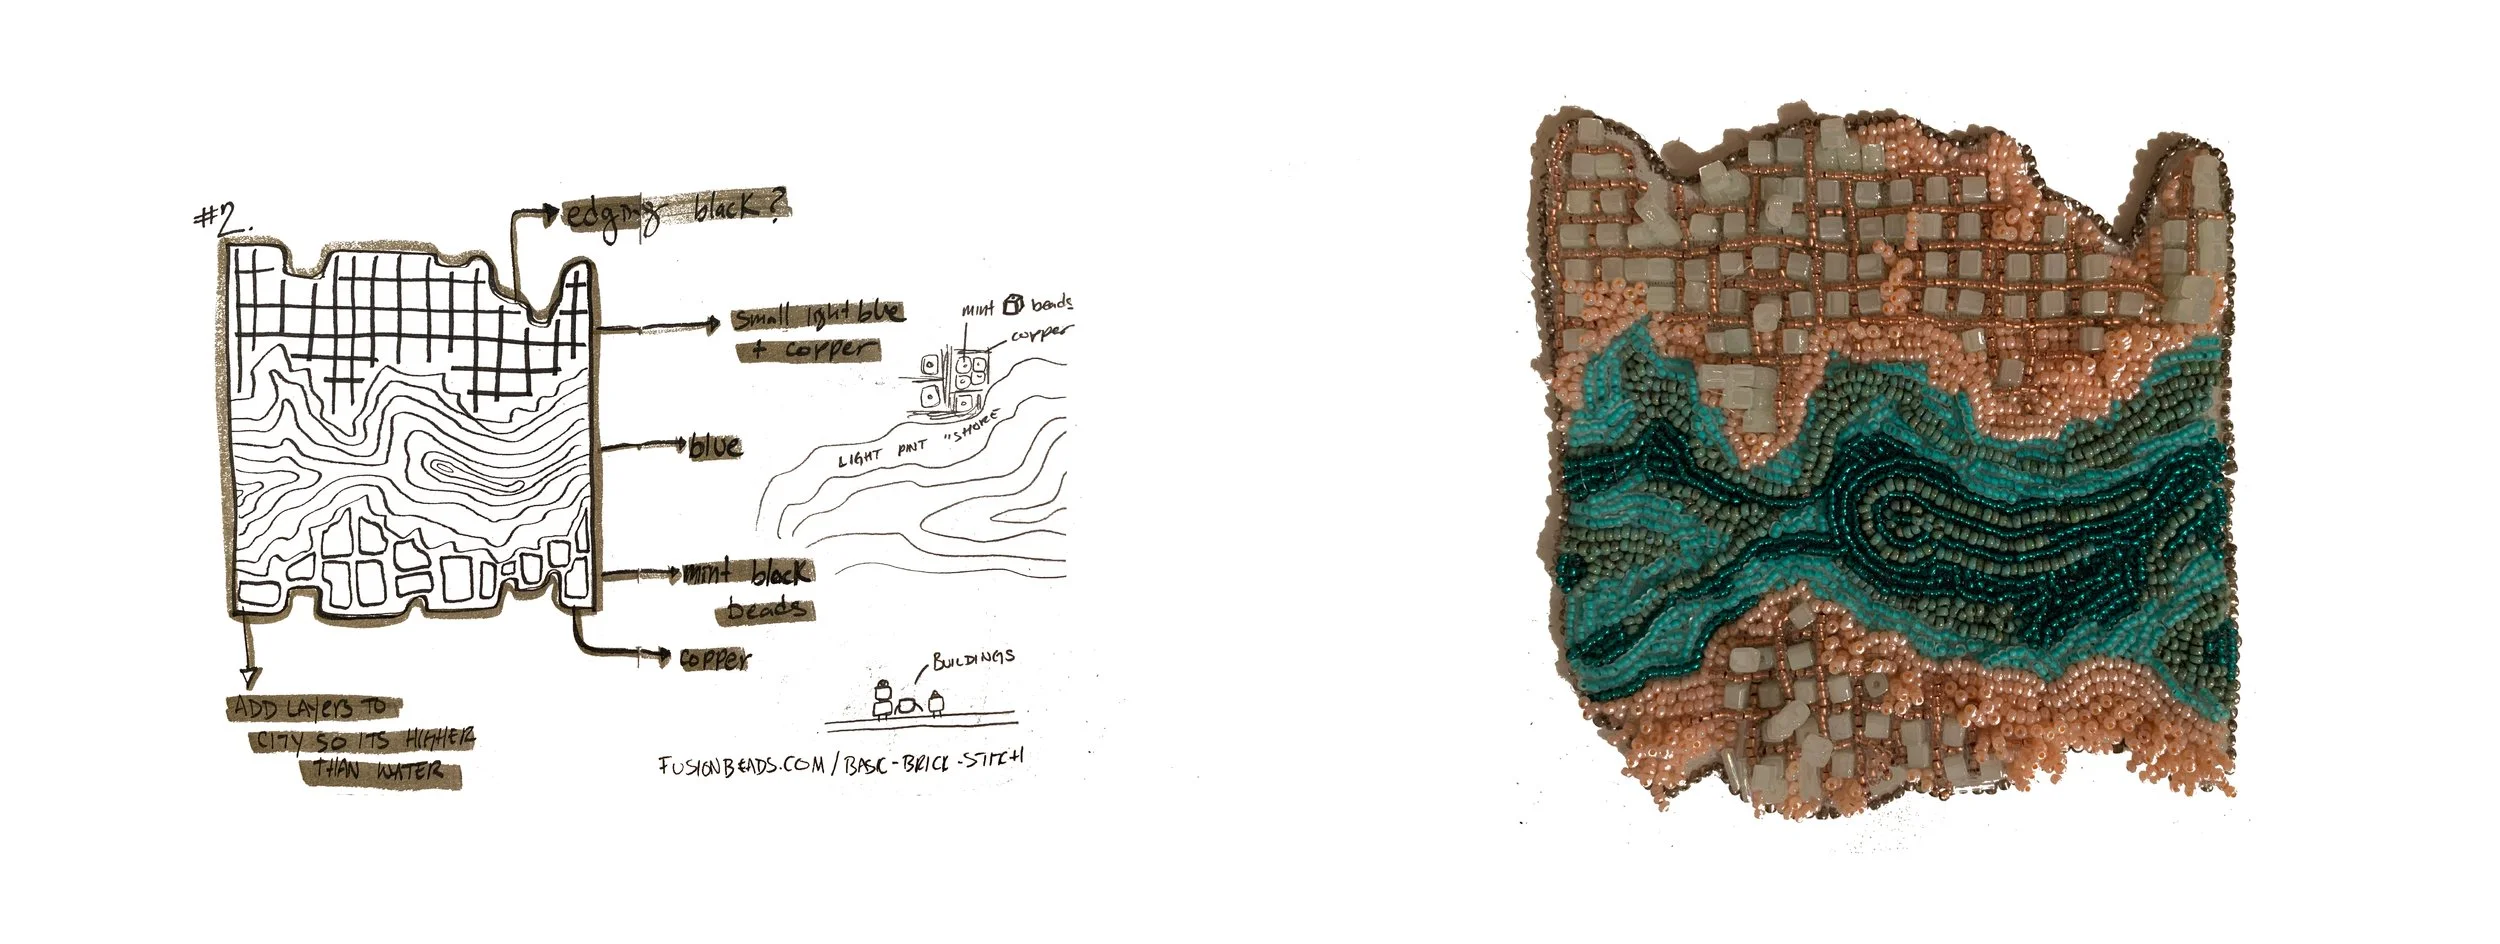 #2.
edging black?
small light blue
+ copper
mint beads
copper
LIGHT PINT "SHORE
blue
mint black
beads
copper
BUILDINGS
ADD LAYErS TO
CITY SO ITS HIGHER
THAN WATER
FUSIONBEADS.COM/BASIC-BRICK-STITCH